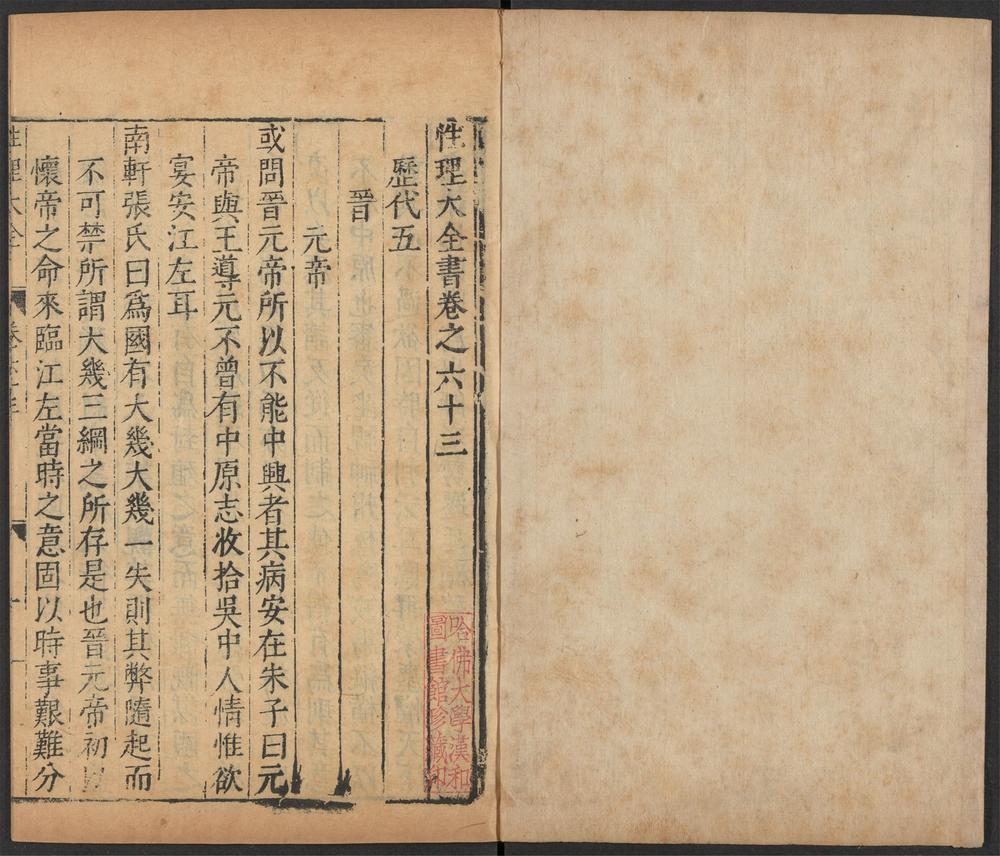 性理大全書卷之六十三
歷代五
晉
元帝
或問晉元帝所以不能中興者其病安在朱子曰元
帝與王導元不曾有中原志收拾吳中人情惟欲
宴安江左耳
南軒張氏曰爲國有大幾大幾一失則其弊隨起而
不可禁所謂大幾三綱之所存是也晉元帝初以
懷帝之命來臨江左當時之意固以時事艱難分
性理大全
哈佛大學漢和
圖書館珍藏印